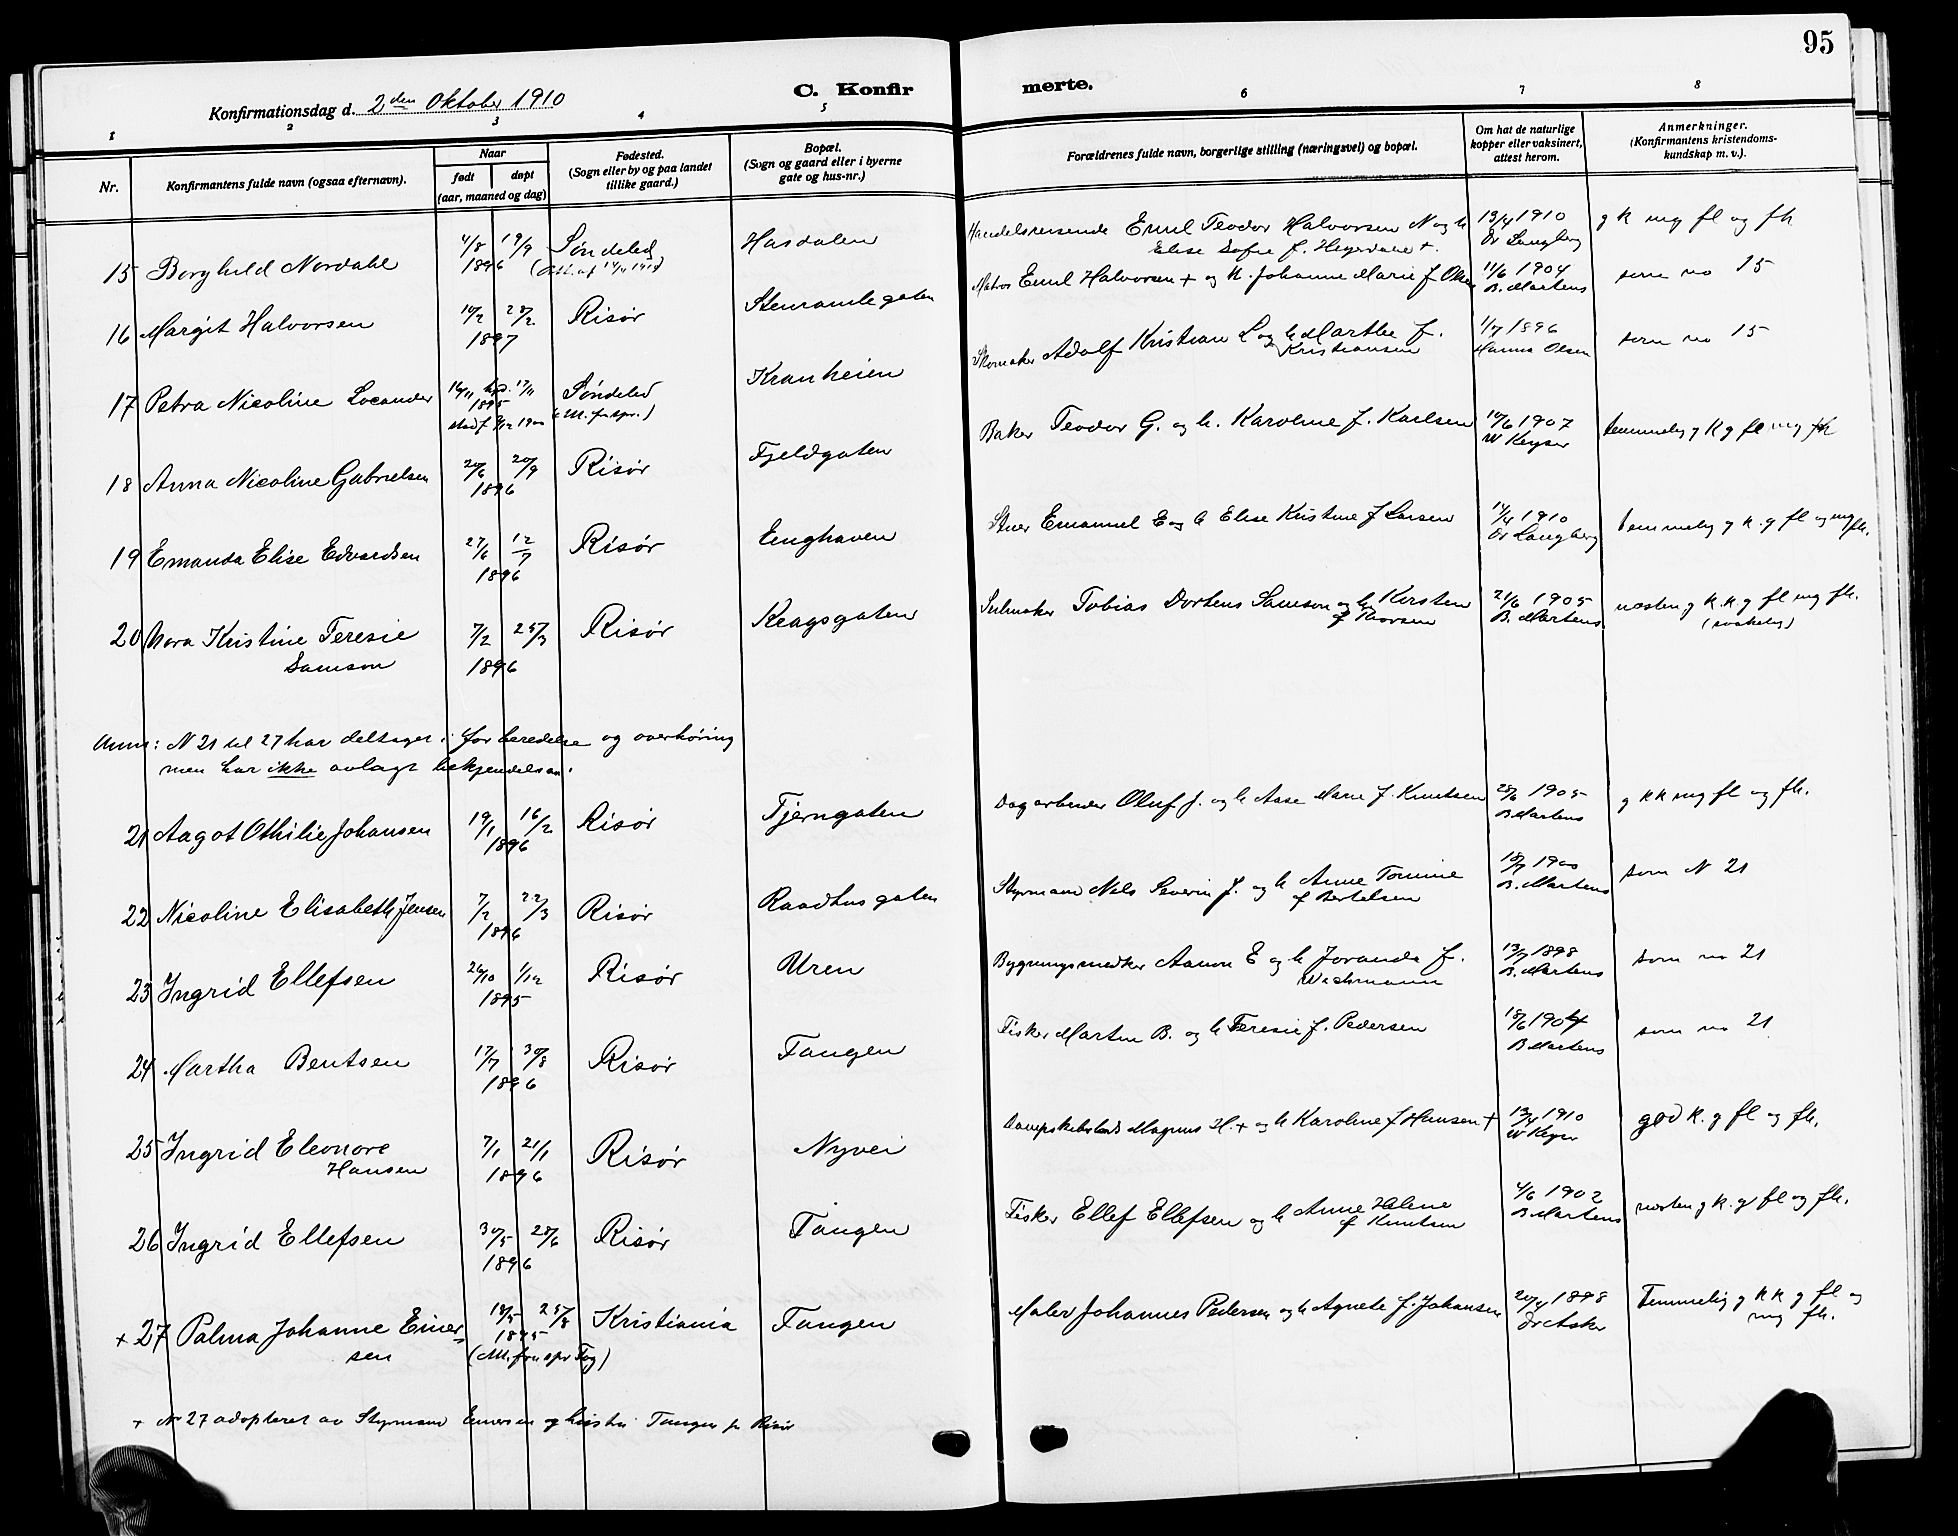 95
C. Konfirmerte.
Konfirmationsdag d. 2den Oktober 1910
1 2 3 4 5 6 7 8
Nr.
Konfirmantens fulde navn (ogsaa efternavn).
Naar
født døpt
(aar, maaned og dag)
Fødested.
(Sogn eller by og paa landet
tillike gaard.)
Bopæl.
(Sogn og gaard eller i byerne
gate og hus-nr.)
Forældrenes fulde navn, borgerlige stilling (næringsvei) og bopæl.
Om hat de naturlige
kopper eller vaksinert,
attest herom.
Anmerkninger.
(Konfirmantens kristendoms-
kundskap m. v.).
15 Borghild Nordahl 4/8 19/9 1896 Søndeled Hasdalen
Handelsreisende Emil Teodor Halvorsen N og h
Elise Sofie f. Heyerdahl +.
13/4 1910
Dr Langberg
g k mg fl og fh
16 Margit Halvorsen 10/2 28/2 1897 Risør Stenramlegaten
Matros Emil Halvorsen + og h. Johanne Marie f Olsen
11/6 1904
B. Martens
som no 15
17 Petra Nicoline Locander 16/11 hjd. 17/11 1895 Søndeled Kranheien
(e M. fr spr.)
Skomaker Adolf Kristian L og h Marthe f.
Kristiansen
1/7 1896
Hanna Olsen
som no 15
18 Anna Nicoline Gabrielsen 20/6 20/9 1896 Risør Fjeldgaten
Baker Teodor G. og h. Karoline f. Karlsen
10/6 1907
W Keyser
temmelig g k g fl mg fh
19 Emanda Elise Edvardsen 27/6 12/7 1896 Risør Enghaven
Stuer Emanuel E og h Elise Kristine f Larsen
14/4 1910
Dr Langberg
temmelig g k. g fl og mg fh.
20 Nora Kristine Teresie
Samson
7/2 25/3 1896 Risør Kragsgaten
Seilmaker Tobias Dortens Samson og h Kirsten
f Thorsen
21/6 1905
B. Martens
næsten g k. k g fl mg fh.
(svakelig)
Anm: N 21 til 27 har deltaget i forberedelse og overhøring
men har ikke avlagt bekjendelsen.
21 Aagot Othilie Johansen 19/1 16/2 1896 Risør Tjerngaten
Dagarbeider Oluf J. og h Aase Marie f. Knutsen
28/6 1905
B Martens
g k k mg fl og fh.
22 Nicoline Elisabeth Jensen 7/2 22/3 1896 Risør Raadhusgaten
Styrmand Nils Severin J. og h Anne Tomine
f Bertelsen
18/7 1900
B. Martens
som N 21
23 Ingrid Ellefsen 26/10 1/12 1895 Risør Uren
Bygningssnedker Aanon E og h Joranda f.
Wichmann
13/7 1898
B. Martens
som no 21
24 Martha Bentsen 17/7 30/8 1896 Risør Tangen
Fisker Marten B. og h Teresie f. Pedersen
18/6 1904
B Martens
som no 21
25 Ingrid Eleonore
Hansen
7/1 21/1 1896 Risør Nyvei
Magnus H. + og h Karoline f Hansen +
13/4 1910
W Keyser
god k. g fl og fh.
26 Ingrid Ellefsen 30/5 28/6 1896 Risør Tangen
Fisker Ellef Ellefsen og h Anne Helene
f Knutsen
4/6 1902
B Martens
næsten g k. g fl og fh.
+ 27 Palma Johanne Einer-
sen
18/5 25/8 1895 Kristiania Tangen
Maler Johannes Pedersen og h Agnete f. Johansen
20/4 1898
Dr Asker
Temmelig g k k g fl og
mg fh.
+ No 27 adopteret av Styrmand Einersen og hustru Tangen pr Risør